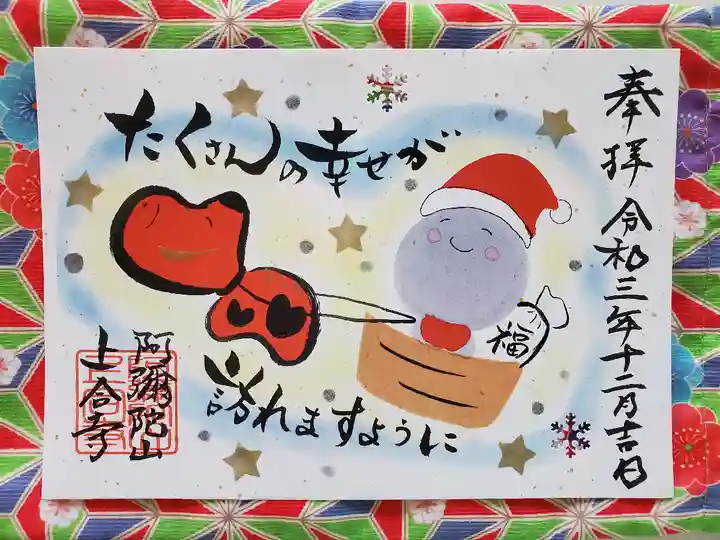 奉拝 令和三年十二月吉日
たくさんの幸せが
訪れますように
福
阿彌陀山
上合寺